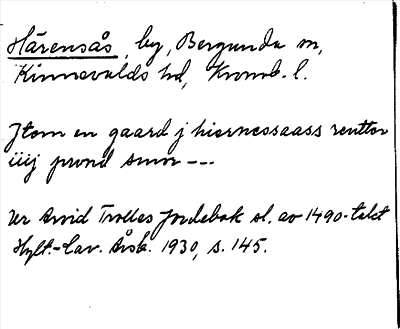 Härensås, by, Bergunda sn,
Kinnevalds hd, Kronob. l.
Jtom en gaard j hiernessaass renttor
iiij pwnd smör ---
Ur Arvid Trolles Jordebok sl. av 1490-talet
Hylt.-Cav. Årsb. 1930, s. 145.